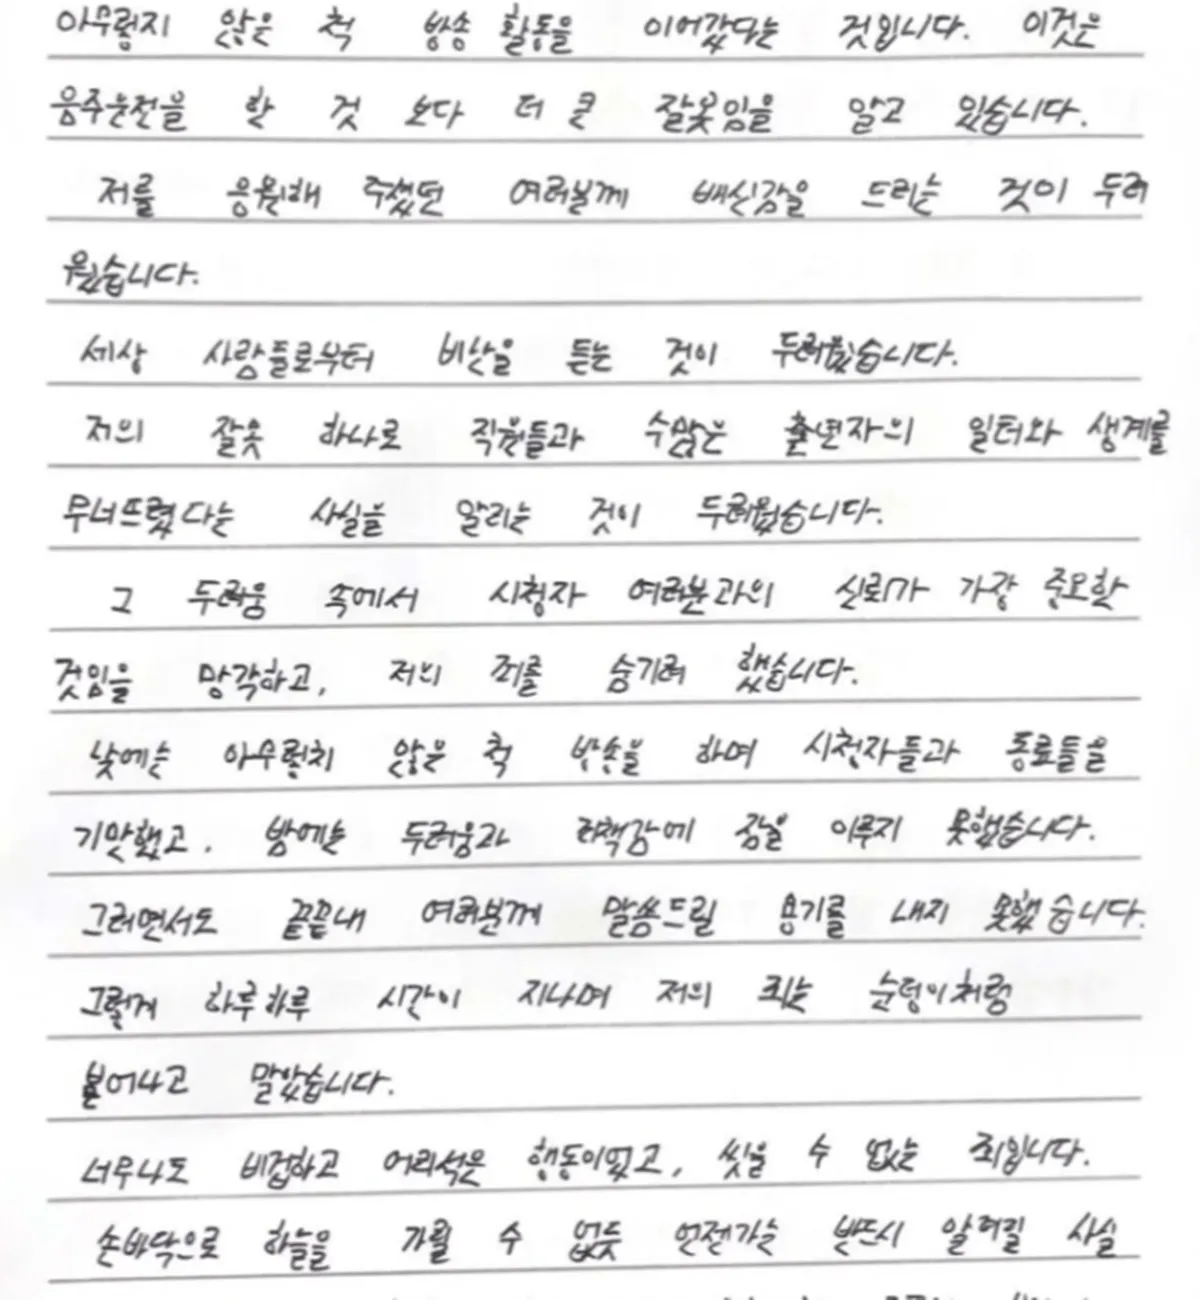 아무렇지 않은 척 방송 활동을 이어갔다는 것입니다. 이것은
음주운전을 한 것 보다 더 큰 잘못임을 알고 있습니다.
저를 응원해 주셨던 여러분께 배신감을 드리는 것이 두려
웠습니다.
세상 사람들로부터 비난을 듣는 것이 두려웠습니다.
저의 잘못 하나로 직원들과 수많은 출연자의 일터와 생계를
무너뜨렸다는 사실을 알리는 것이 두려웠습니다.
그 두려움 속에서 시청자 여러분과의 신뢰가 가장 중요한
것임을 망각하고, 저의 죄를 숨기려 했습니다.
낮에는 아무렇치 않은 척 방송을 하며 시청자들과 동료들을
기만했고, 밤에는 두려움과 죄책감에 잠을 이루지 못했습니다.
그러면서도 끝끝내 여러분께 말씀드릴 용기를 내지 못했습니다.
그렇게 하루하루 시간이 지나며 저의 죄는 눈덩이처럼
불어나고 말았습니다.
너무나도 비겁하고 어리석은 행동이었고, 씻을 수 없는 죄입니다.
손바닥으로 하늘을 가릴 수 없듯 언젠가는 반드시 알려질 사실